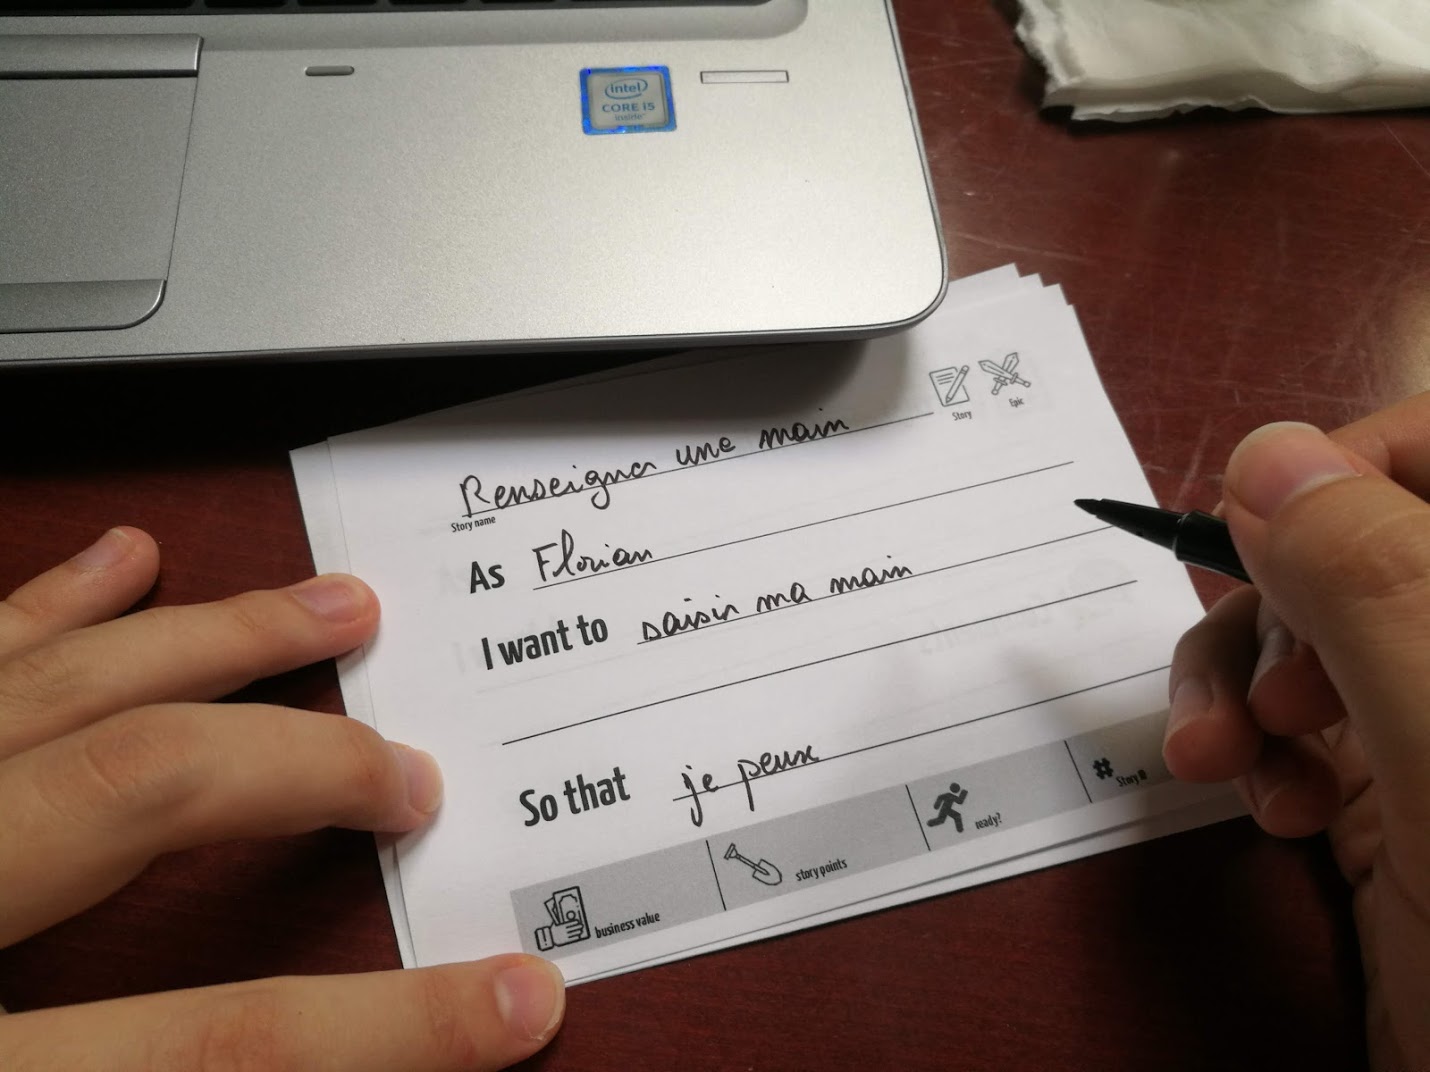 intel
CORE i5
inside™
Renseigner une main
Story name
Story
Epic
As Florian
I want to saisir ma main
So that je peux
business value
story points
ready?
# Story ID